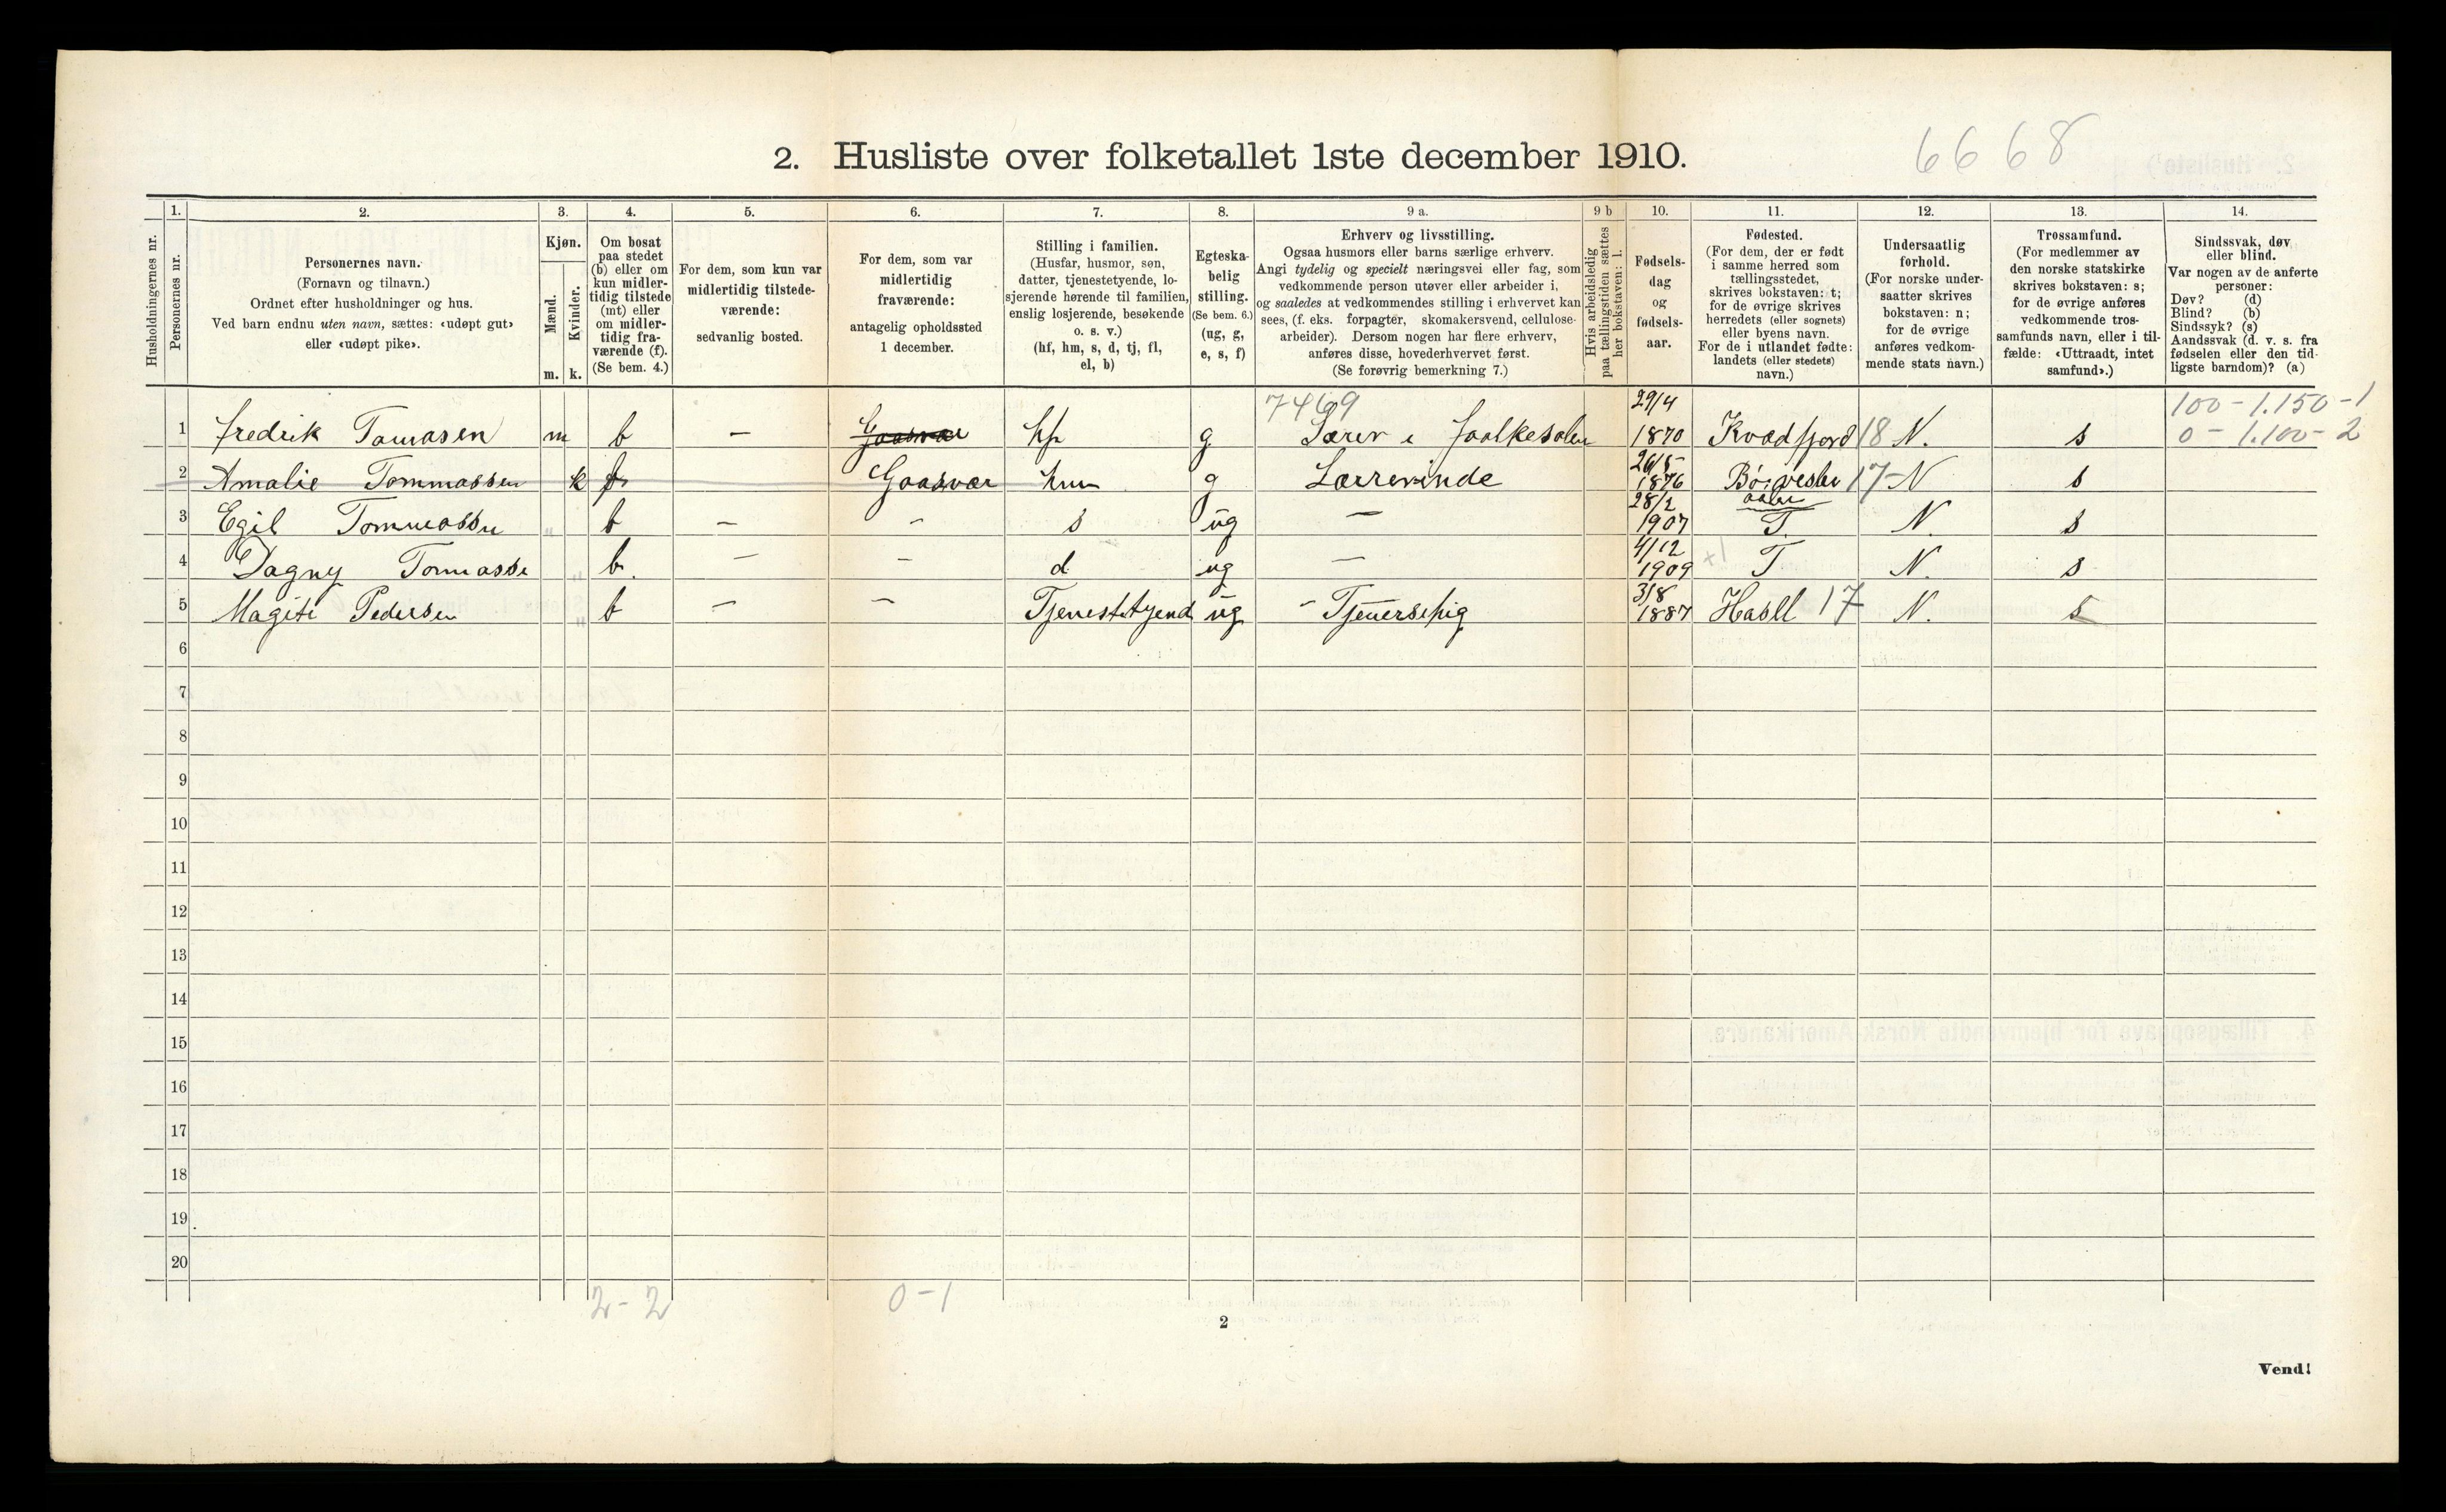 2. Husliste over folketallet 1ste december 1910.
6668
Husholdningernes nr.
1.
Personernes nr.
2.
Personernes navn.
(Fornavn og tilnavn.)
Ordnet efter husholdninger og hus.
Ved barn endnu uten navn, sættes: «udøpt gut»
eller «udøpt pike».
3.
Kjøn.
Mænd.
Kvinder.
m. k.
4.
Om bosat
paa stedet
(b) eller om
kun midler-
tidig tilstede
(mt) eller
om midler-
tidig fra-
værende (f).
(Se bem. 4.)
5.
For dem, som kun var
midlertidig tilstede-
værende:
sedvanlig bosted.
6.
For dem, som var
midlertidig
fraværende:
antagelig opholdssted
1 december.
7.
Stilling i familien.
(Husfar, husmor, søn,
datter, tjenestetyende, lo-
sjerende hørende til familien,
enslig losjerende, besøkende
o. s. v.)
(hf, hm, s, d, tj, fl,
el, b)
8.
Egteska-
belig
stilling.
(Se bem. 6.)
(ug, g,
e, s, f)
9 a.
Erhverv og livsstilling.
Ogsaa husmors eller barns særlige erhverv.
Angi tydelig og specielt næringsvei eller fag, som
vedkommende person utøver eller arbeider i,
og saaledes at vedkommendes stilling i erhvervet kan
sees, (f. eks. forpagter, skomakersvend, cellulose-
arbeider). Dersom nogen har flere erhverv,
anføres disse, hovederhvervet først.
(Se forøvrig bemerkning 7.)
9 b
Hvis arbeidsledig
paa tællingstiden sættes
her bokstaven: l.
10.
Fødsels-
dag
og
fødsels-
aar.
11.
Fødested.
(For dem, der er født
i samme herred som
tællingsstedet,
skrives bokstaven: t;
for de øvrige skrives
herredets (eller sognets)
eller byens navn.
For de i utlandet fødte:
landets (eller stedets)
navn.)
12.
Undersaatlig
forhold.
(For norske under-
saatter skrives
bokstaven: n;
for de øvrige
anføres vedkom-
mende stats navn.)
13.
Trossamfund.
(For medlemmer av
den norske statskirke
skrives bokstaven: s;
for de øvrige anføres
vedkommende tros-
samfunds navn, eller i til-
fælde: «Uttraadt, intet
samfund».)
14.
Sindssvak, døv
eller blind.
Var nogen av de anførte
personer:
Døv? (d)
Blind? (b)
Sindssyk? (s)
Aandssvak (d. v. s. fra
fødselen eller den tid-
ligste barndom)? (a)
7469 29/4 100 - 1.150 - 1
1 Fredrik Tomasen m b — Gaasvær hf g Lærer i 1870 Kvædfjord 18 N. s 0 - 1.100 - 2
2 Amalie Tommassen k f Gaasvær hm g Lærerinde 26/5 1876 17 N s
3 Egil Tommassen b — - s ug — 28/2 1907 T. N. s
4 Dagny Tomasse b. — — d ug — 4/12 1909 +1 T N. s
5 Magiti Pedersen b — — Tjenestetyend ug 3/8 1887 17 N. s
6
7
8
9
10
11
12
13
14
15
16
17
18
19
20
2 - 2 0 - 1
2
Vend!